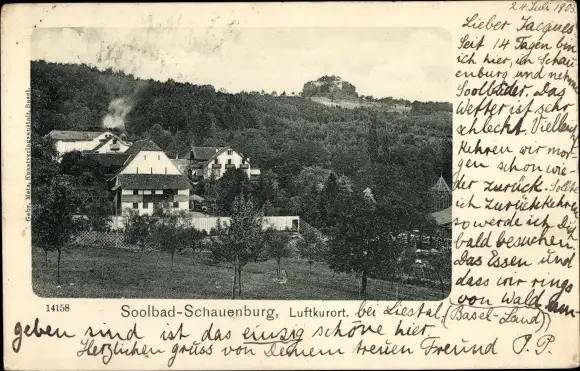 24. Juli 1903
Lieber Jacques
Seit 14 Tagen bin
ich hier, in Schau-
enburg und nehme
Soolbäder. Das
Wetter ist sehr
schlecht. Vielleicht
kehren wir mor-
gen schon wie-
der zurück. Sollte
ich zurückkehren
so werde ich dich
bald besuchen.
Das Essen und
dass wir rings
von Wald um-
geben sind ist das einzig schöne hier.
Herzlichen gruss von Deinem treuen Freund P. P.
Gebr. Metz, Kunstverlagsanstalt, Basel.
14158
Soolbad-Schauenburg, Luftkurort. bei Liestal
(Basel-Land)